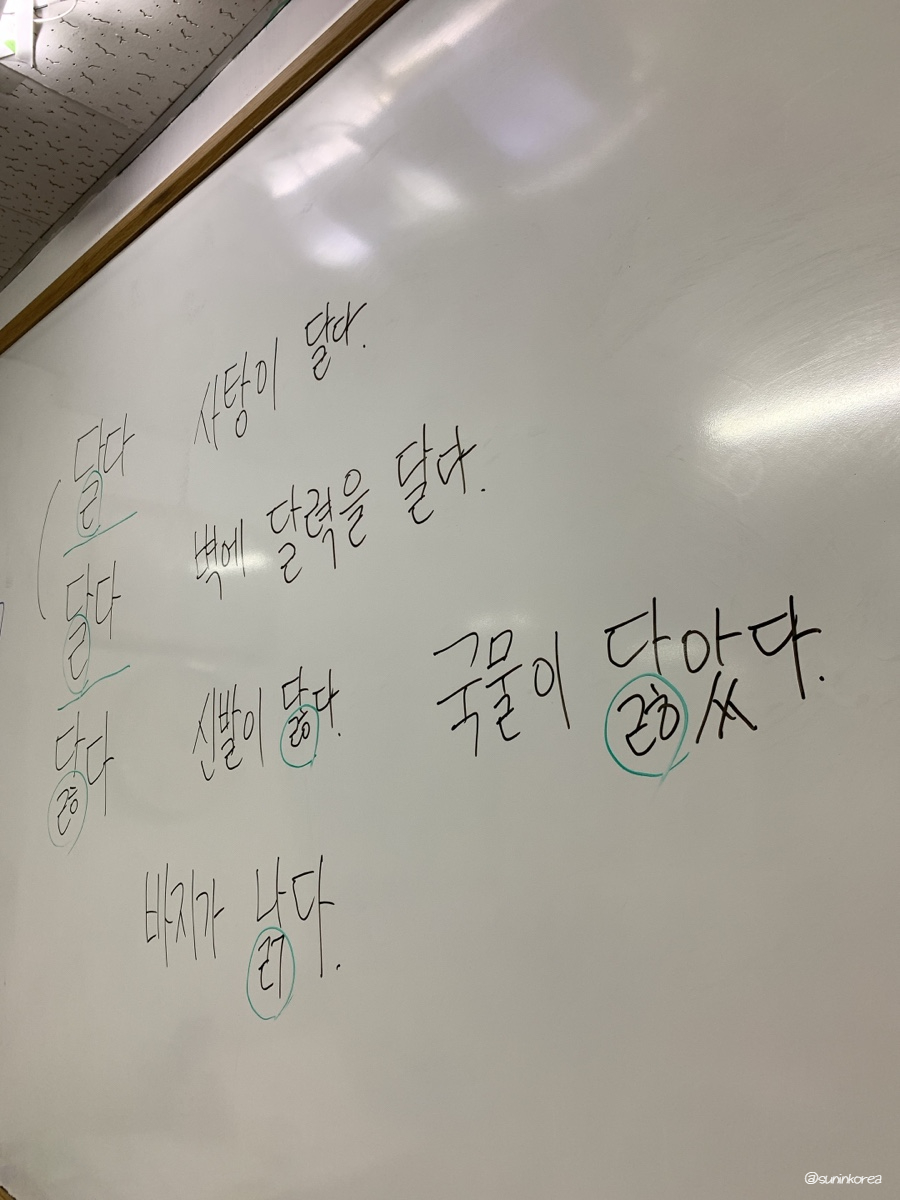 달다 사탕이 달다.
달다 벽에 달력을 달다.
닳다 신발이 닳다. 국물이 닳았다.
바지가 낡다.
@suninkorea